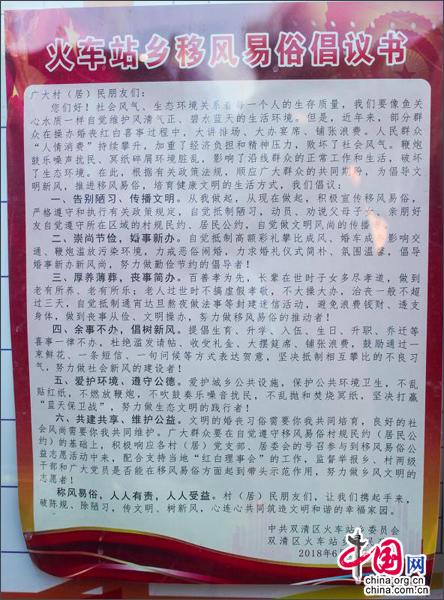 火车站乡移风易俗倡议书
广大村（居）民朋友们：
您们好！社会风气、生态环境关系着每一个人的生存质量，我们要像鱼关
心水质一样自觉维护风清气正、碧水蓝天的生活环境。但是，近年来，部分群
众在操办婚丧红白喜事过程中，大讲排场、大办宴席、铺张浪费。人民群众
“人情消费”持续攀升，加重了经济负担和精神压力，败坏了社会风气。鞭炮
鼓乐噪声扰民、冥纸碎屑环境脏乱，影响了沿线群众的正常工作和生活，破坏
了生态环境。在此，根据有关政策法规，顺应广大群众的共同期盼，为倡导文
明新风，推进移风易俗，培育健康文明的生活方式，我们倡议：
一、告别陋习、传播文明。从我做起，从现在做起，积极宣传移风易俗，
严格遵守和执行有关政策规定，自觉抵制陋习，动员、劝说父母子女、亲朋好
友自觉遵守所在区域的村规民约、居民公约，自觉做文明风尚的传播者。
二、崇尚节俭，婚事新办。自觉抵制高额彩礼攀比成风、婚车成 影响交
通、鞭炮滥放污染环境，力戒恶俗闹婚，力求婚礼仪式简朴、氛围温馨，倡导
婚事新办新风尚，努力做勤俭节约的倡导者！
三、厚养薄葬，丧事简办。百善孝为先，长辈在世时子女多尽孝道，做到
老有所养、老有所乐；老人过世时不搞虚假孝敬，不大操大办，治丧一般不超
过三天，自觉抵制通宵达旦熬夜做法事等封建迷信活动，避免浪费钱财、透支
身体，做到丧事从俭、文明操办，努力做移风易俗的推动者！
四、余事不办，倡树新风。提倡生育、升学、入伍、生日、升职、乔迁等
喜事一律不办。杜绝滥发请帖、收受礼金、大摆筵席、铺张浪费，鼓励通过一
束鲜花、一条短信、一句问候等方式表达贺意，坚决抵制相互攀比的不良习
气，努力做社会新风的建设者！
五、爱护环境、遵守公德。爱护城乡公共设施，保护公共环境卫生，不乱
贴红纸，不燃放鞭炮，不吹鼓奏乐噪音扰民，不乱抛和焚烧冥纸，坚决打赢
“蓝天保卫战”，努力做生态文明的践行者！
六、共建共享、维护公益。文明的婚丧习俗需要你我共同培育，良好的社
会风尚需要你我共同维护。广大群众要在自觉遵守移风易俗村规民约（居民公
约）的基础上，积极响应各村（居）党支部、居委会的号召参与到移风易俗公
益志愿活动中来，配合支持当地“红白理事会”的工作，监督举报乡、村两级
干部和广大党员是否能在移风易俗方面起到带头示范作用，努力做乡风文明的
志愿者！
称风易俗，人人有责，人人受益。村（居）民朋友们，让我们携起手来，
破陈规、除陋习，传文明、树新风，心连心共同筑造文明和谐的幸福家园。
中共双清区火车站 委员会
双清区火车站
2018年6
中国网
china.org.cn
china.com.cn